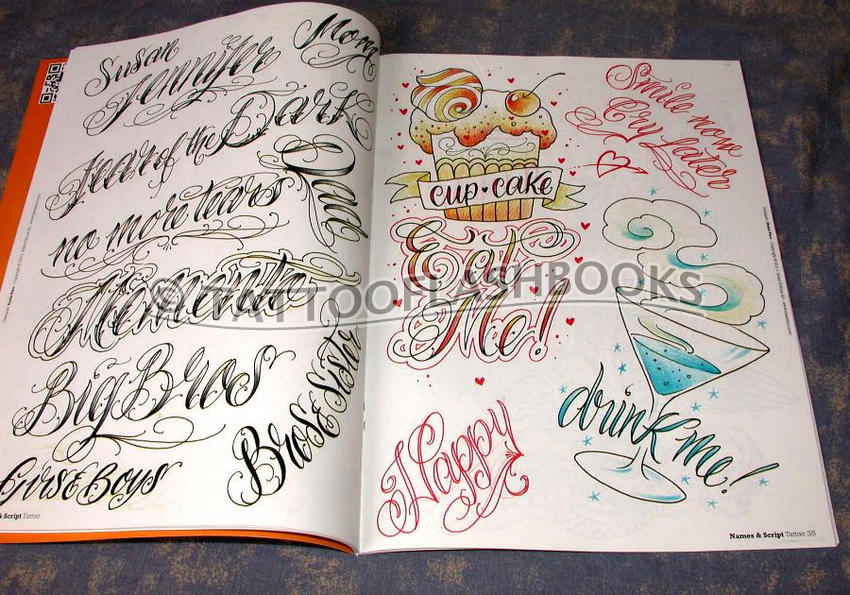 Susan
Jennifer
Mom
Fear of the Dark
Dad
no more tears
Memento
Big Bros
Bros & Sister
Girls & Boys
& Script Tattoo
cup·cake
Eat
Me!
Smile now
Cry Later
drink me!
Happy
Names & Script Tattoo 35
© TATTOOFLASHBOOKS